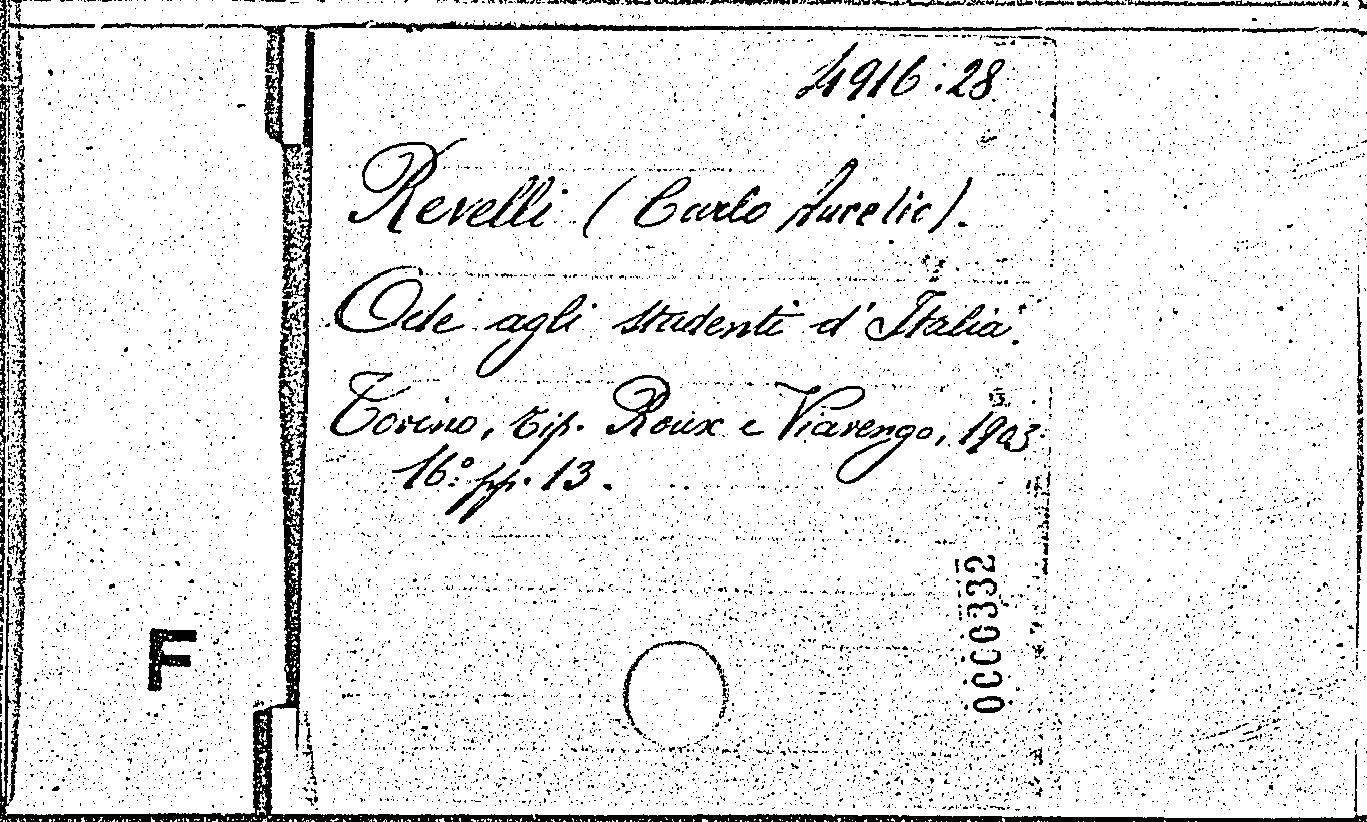 4916.28
Revelli (Carlo Aurelio).
Ode agli studenti d'Italia.
Torino, tip. Roux e Viarengo, 1903
16° pp. 13.
0000332
F